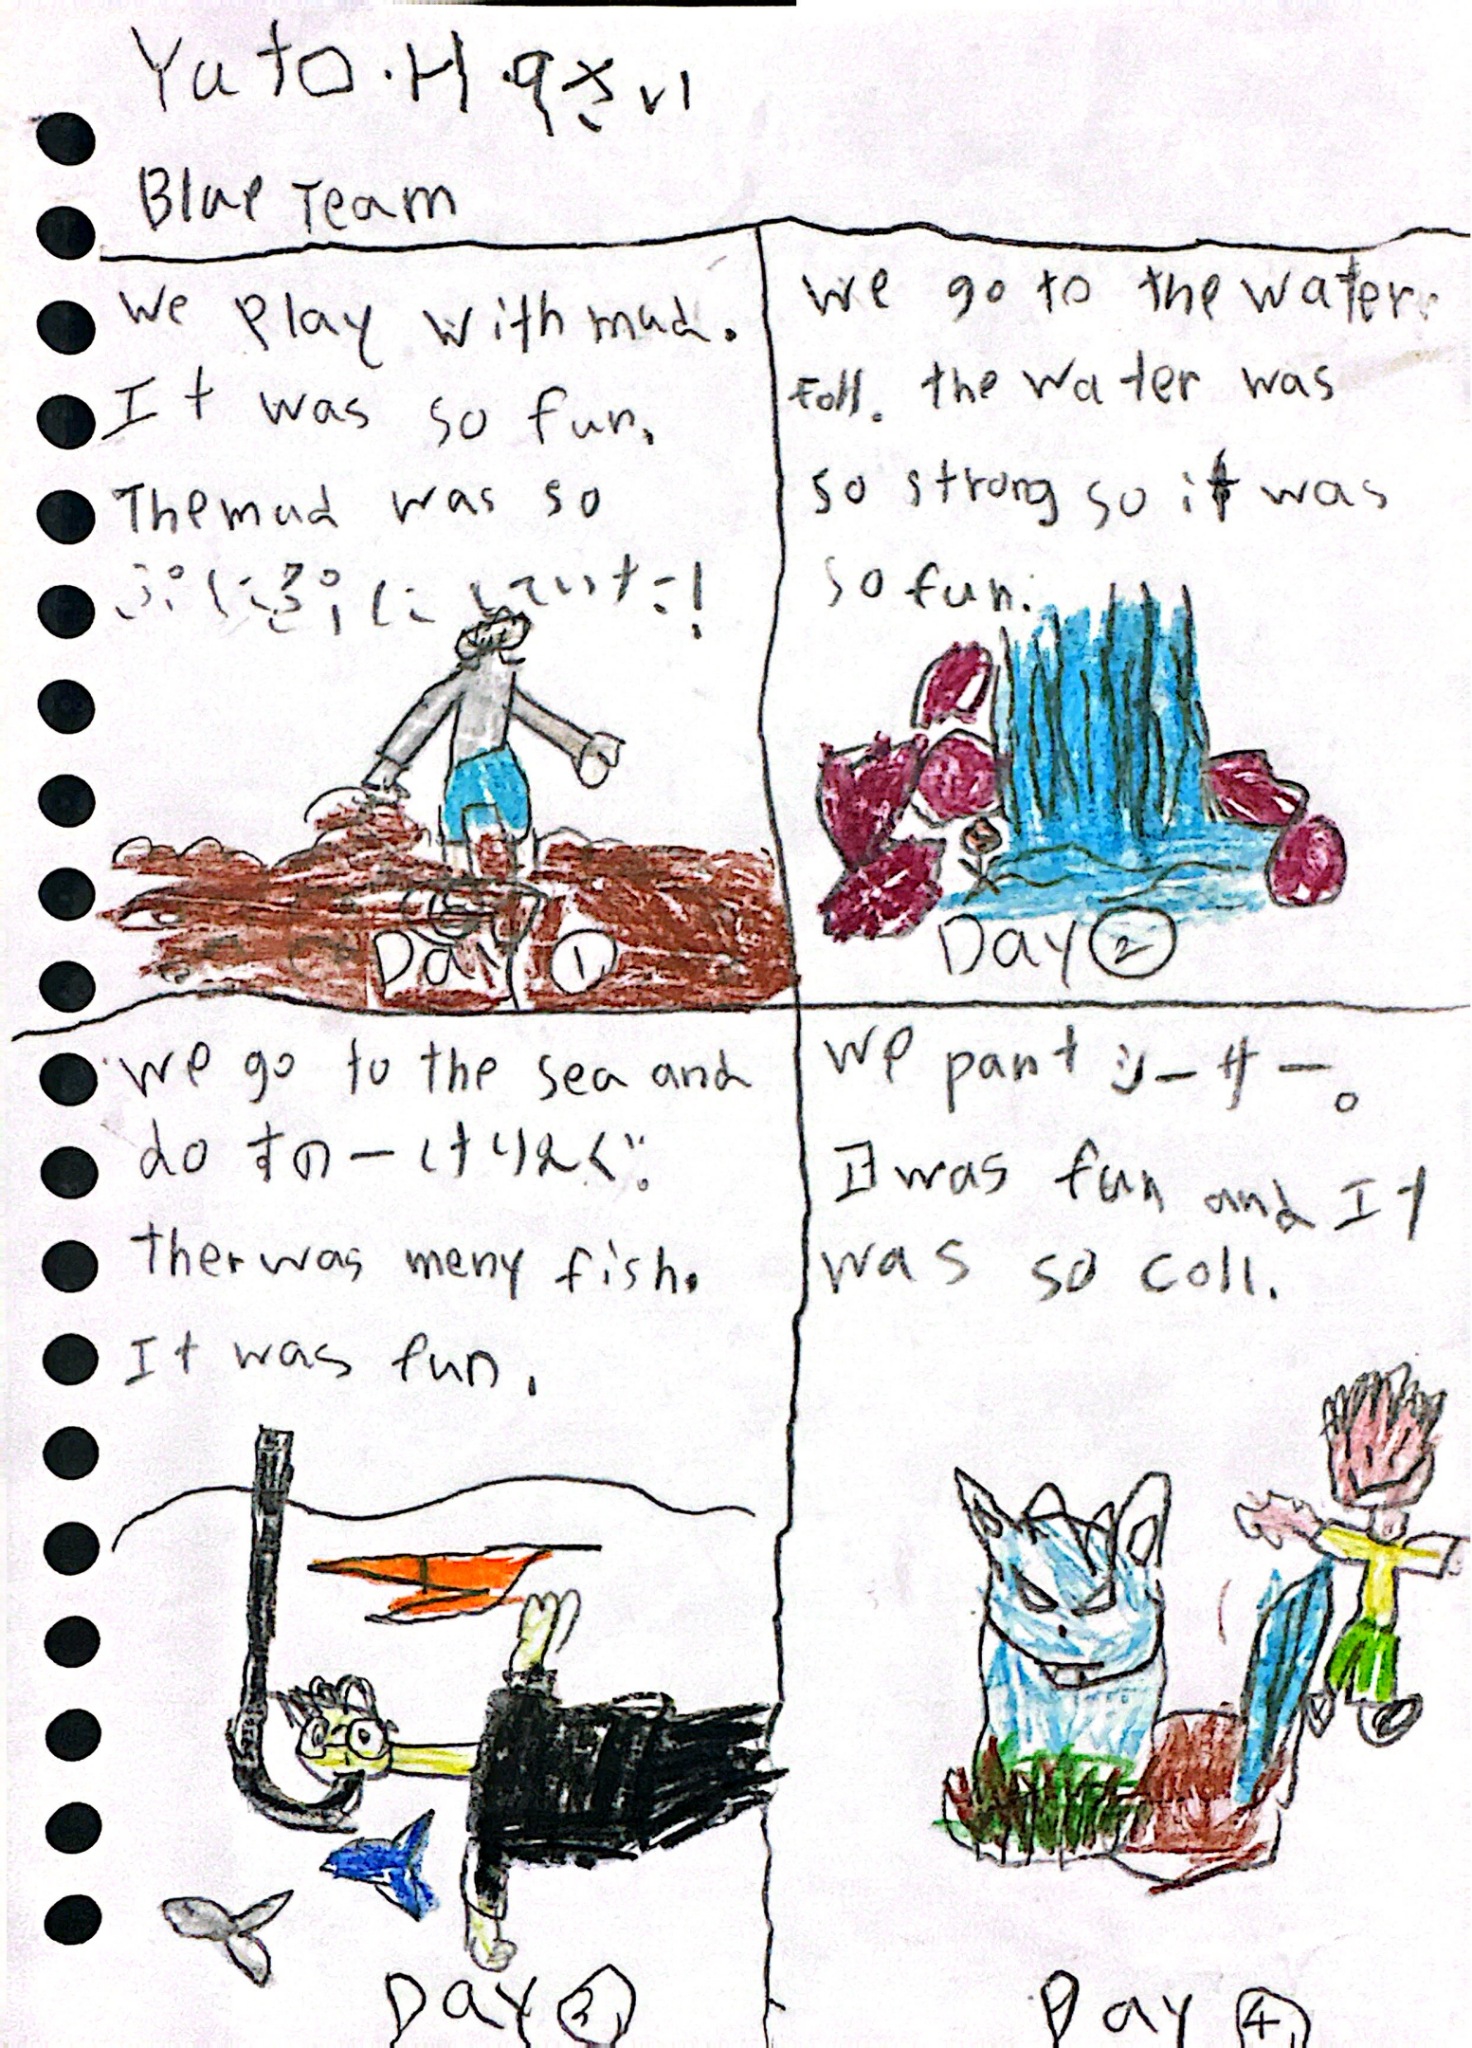 Yuto.H.
Blue Team
We play with mud.
It was so fun.
The mud was so
ぷにぷにしていた!
Day ①
We go to the water
Foll. the water was
so strong so it was
so fun.
Day ②
we go to the sea and
do すのーけりんぐ.
ther was meny fish.
It was fun.
Day ③
We pant シーサー。
It was fun and It
was so coll.
Day ④